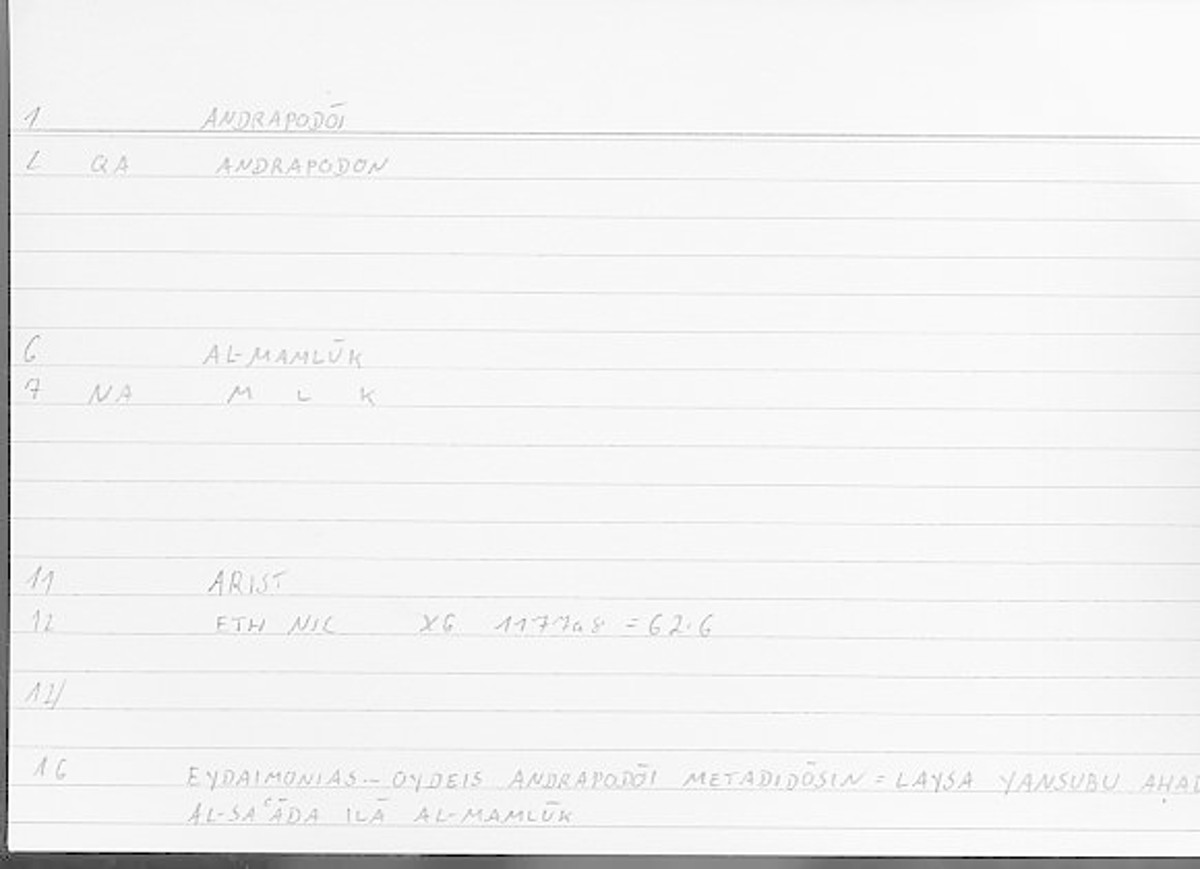 1 ANDRAPODŌI
2 QA ANDRAPODON
6 AL-MAMLŪK
7 NA M L K
11 ARIST
12 ETH NIC X6 1177a8 = 62.6
16 EYDAIMONIAS-- OYDEIS ANDRAPODŌI METADIDŌSIN = LAYSA YANSUBU
AL-SAʿĀDA ILĀ AL-MAMLŪK